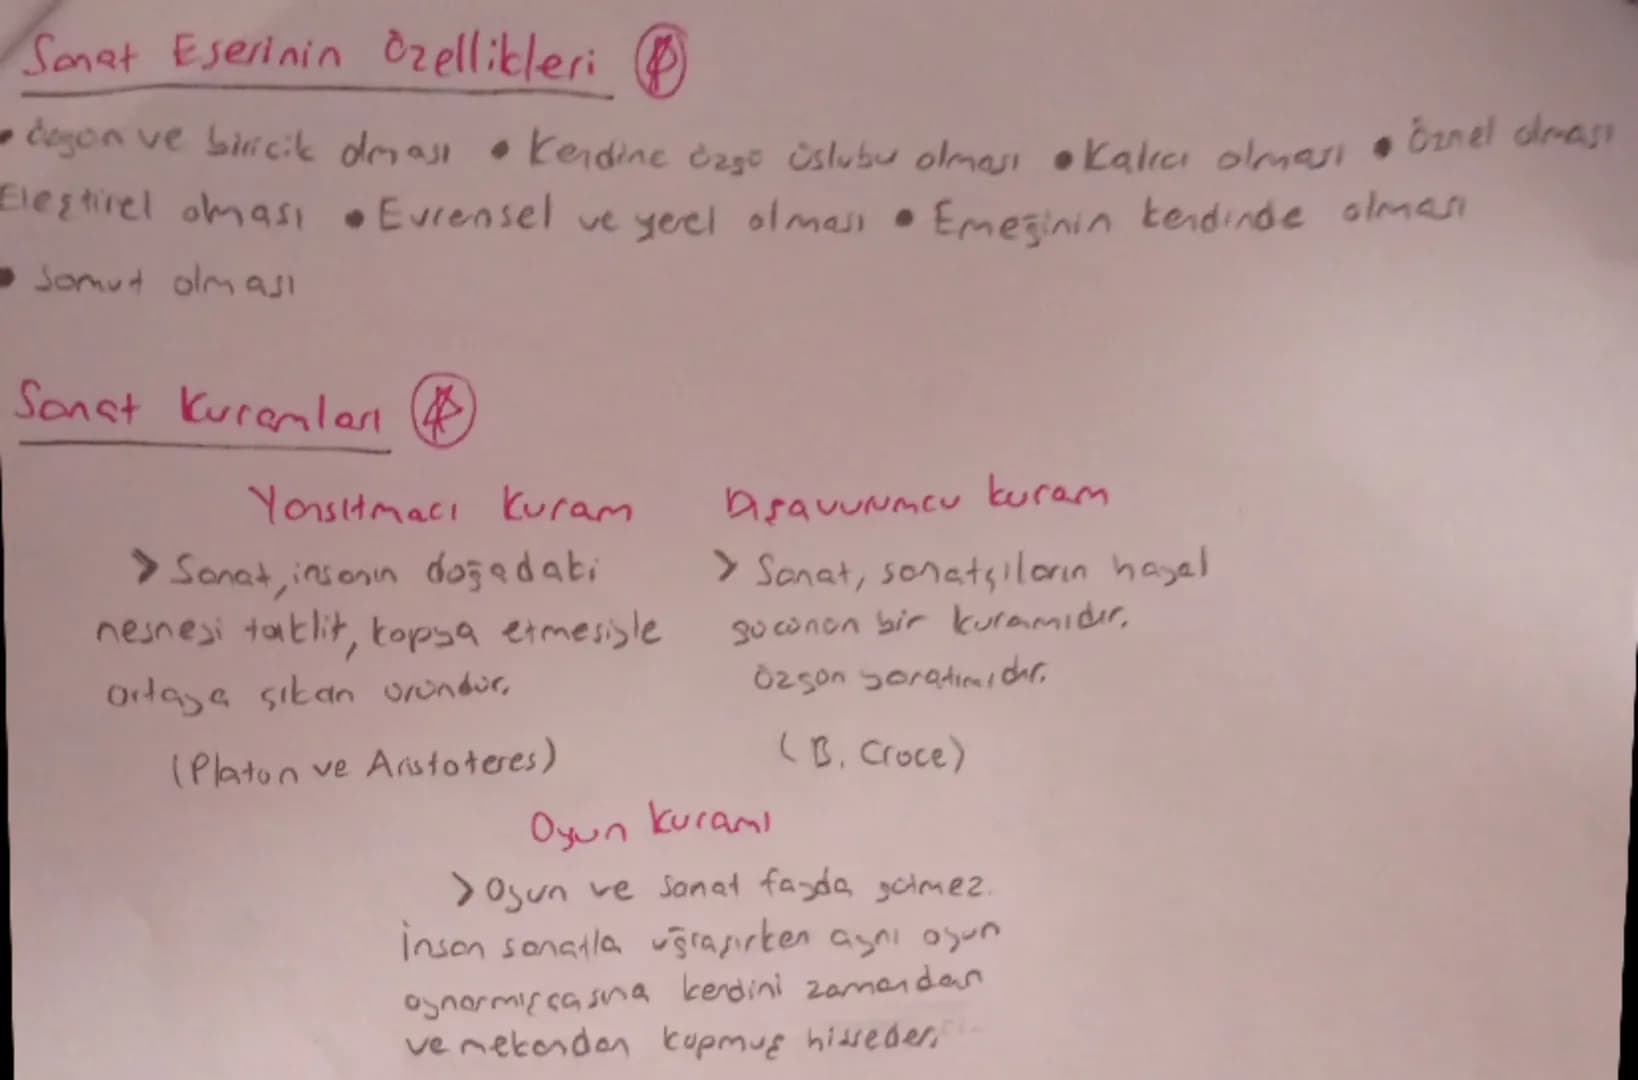 Sanat Eserinin Özellikleri
• özgün ve biricik olması • Kendine özgü üslubu olması • Kalıcı olması • Öznel olması
Eleştirel olması • Evrensel ve yerel olması • Emeğinin kendinde olması
• Somut olması
Sanat Kuramları
Yansıtmacı Kuram
> Sanat, insanın doğadaki
nesnesi taklit, kopya etmesiyle
ortaya çıkan üründür.
(Platon ve Aristoteres)
Dışavurumcu kuram
> Sanat, sanatçıların hayal
gücünün bir kuramıdır.
Özgün yaratımıdır.
(B. Croce)
Oyun Kuramı
> Oyun ve sanat fayda gütmez.
İnsan sanatla uğraşırken aynı oyun
oynarmışçasına kendini zamandan
ve mekandan kopmuş hisseder.